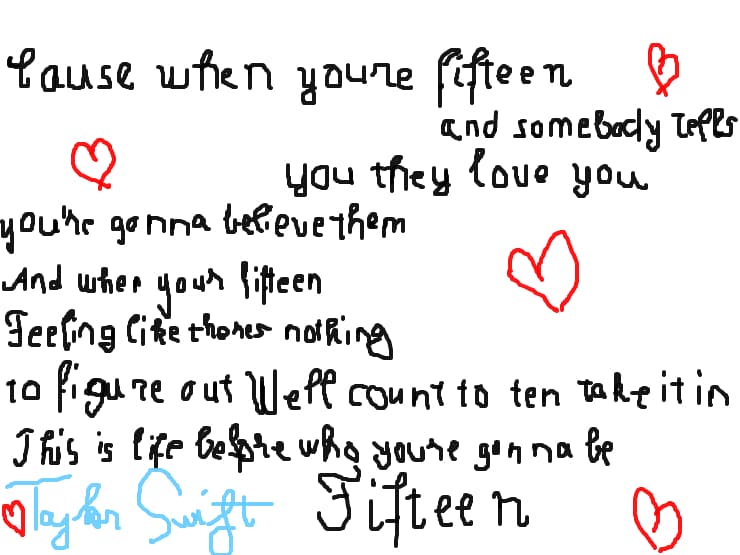 Cause when youre fifteen
and somebody tells
you they love you
you're gonna believe them
And when your fifteen
Feeling like theres nothing
to figure out Well count to ten take it in
This is life before who you're gonna be
Taylor Swift Fifteen